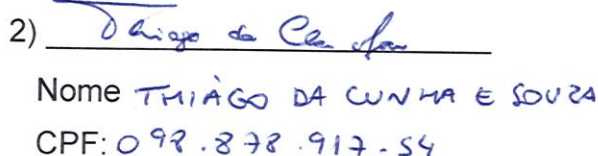 2) Thiago da
Nome THIAGO DA CUNHA E SOUZA
CPF: 098.878.917-54